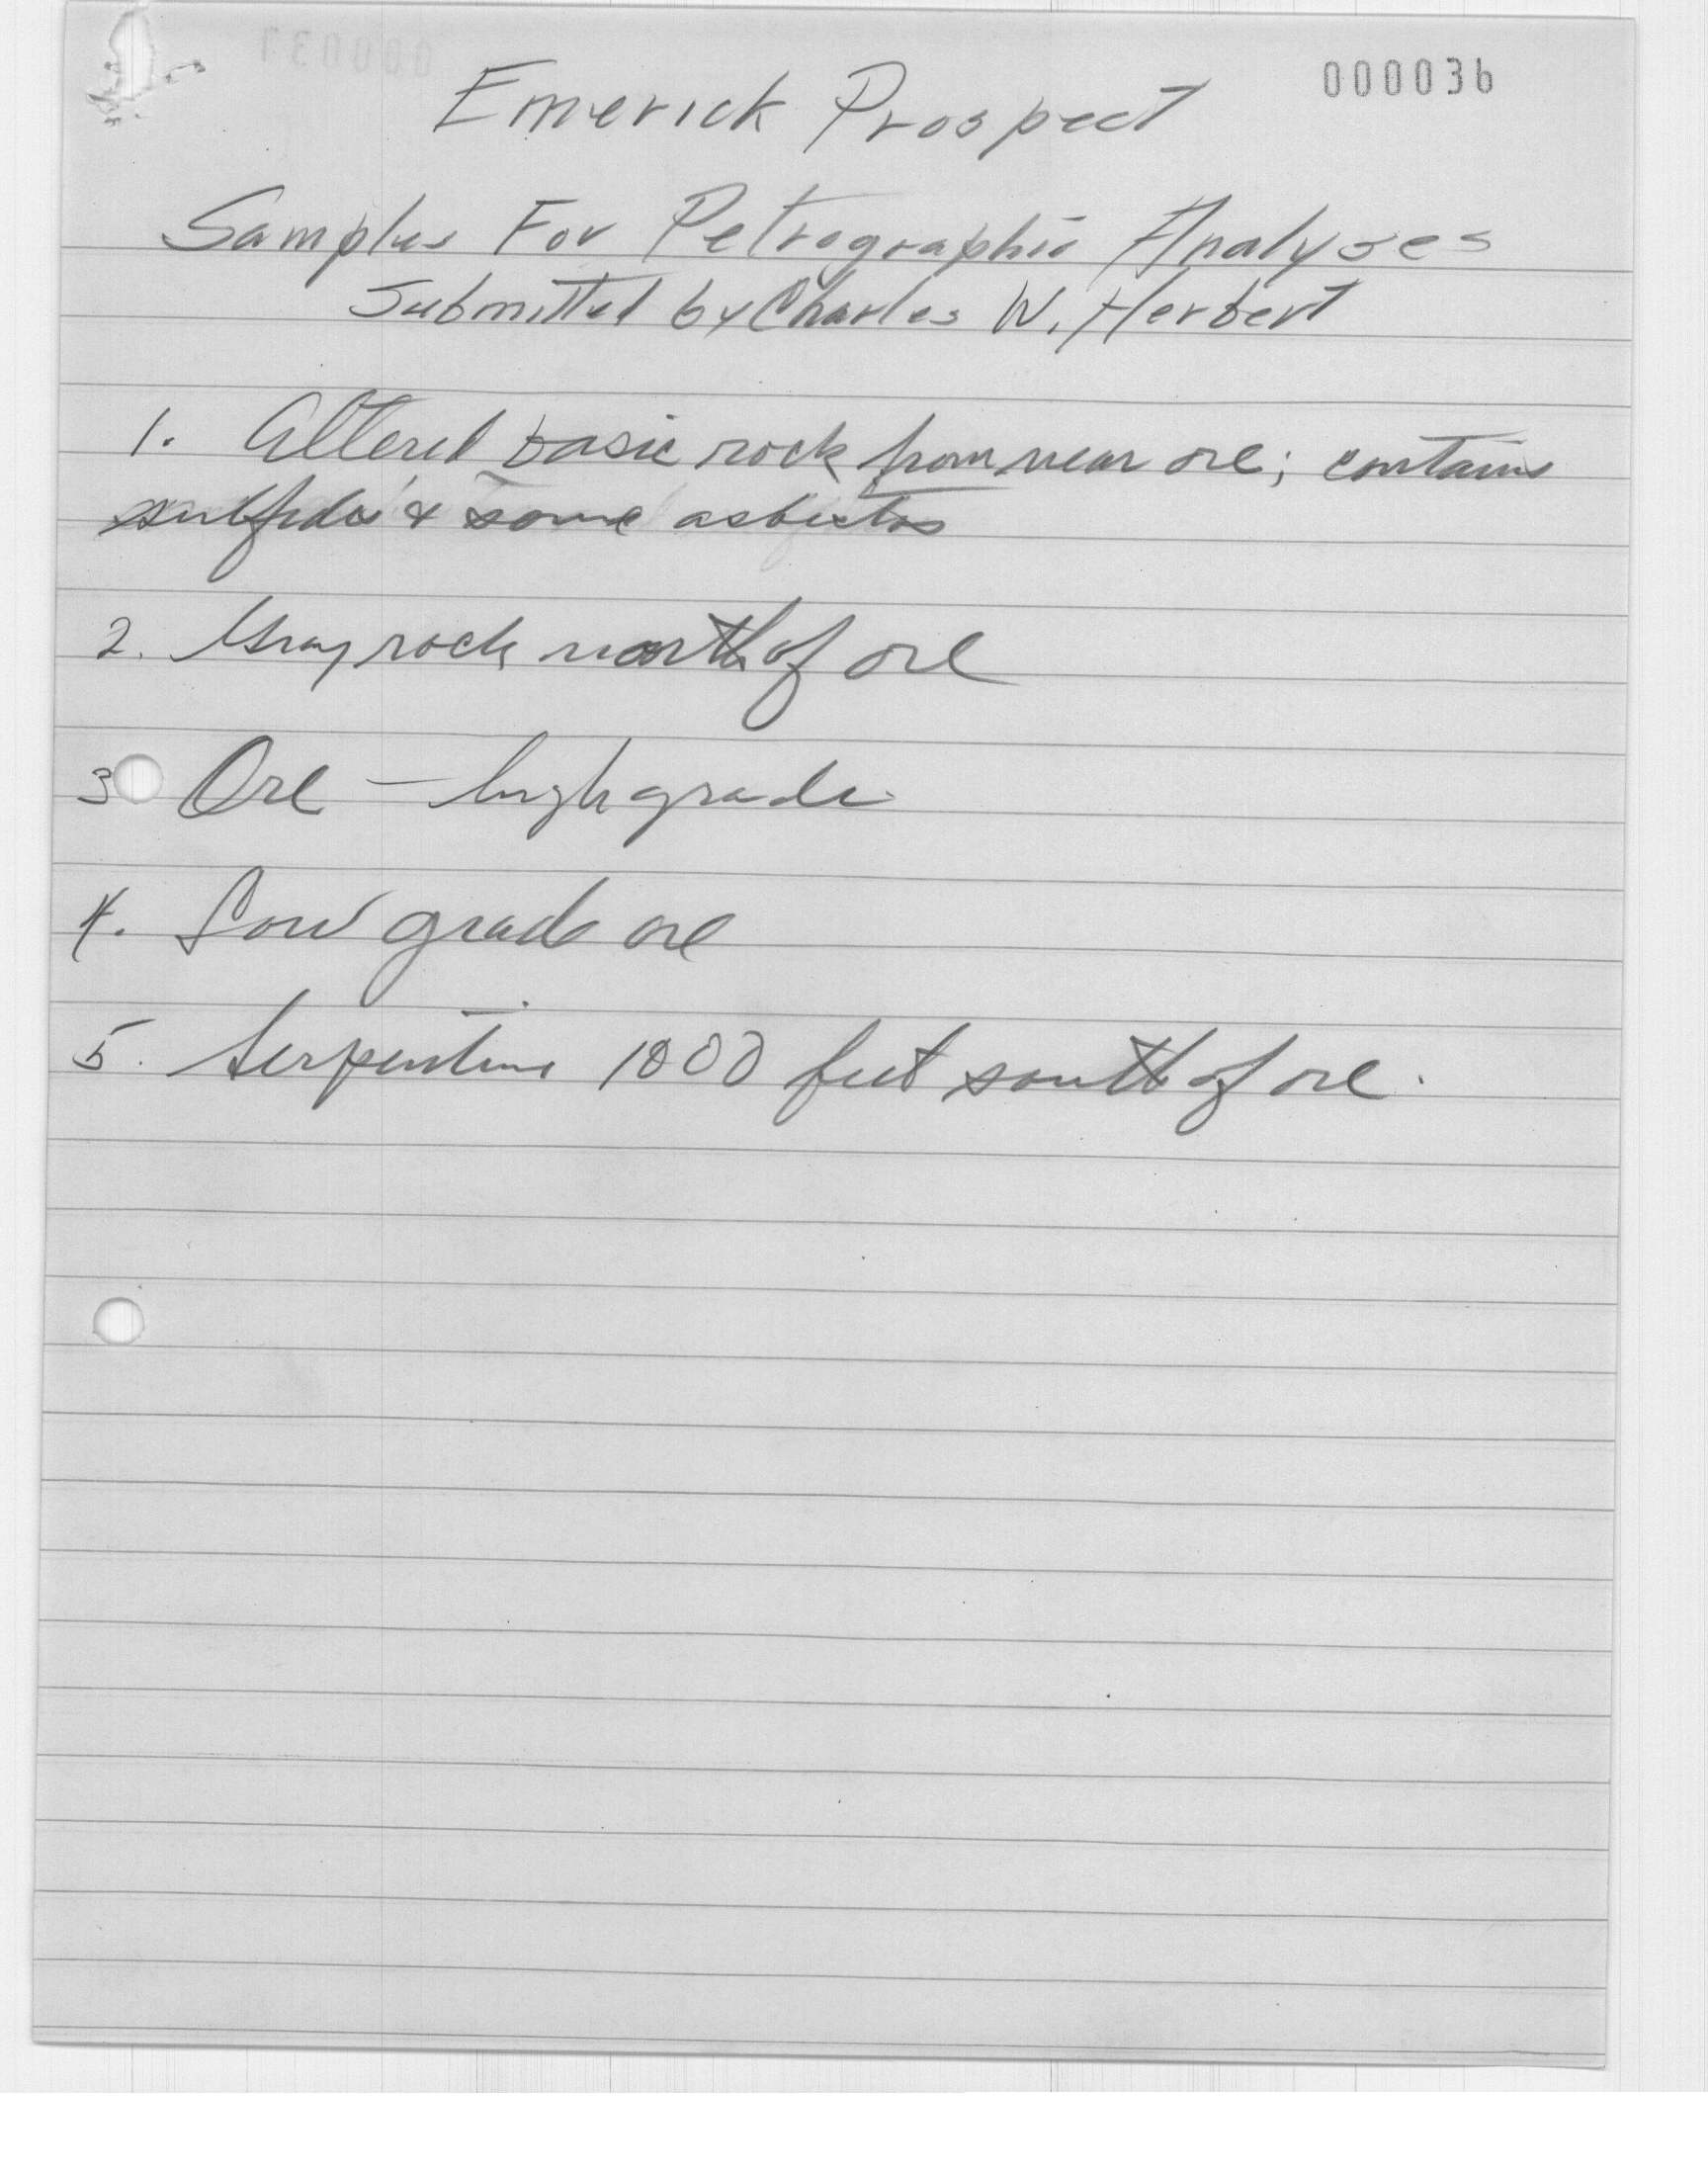 000036
Emerick Prospect
Samples For Petrographic Analyses
Submitted by Charles W. Herbert
1. Altered basic rock from near ore; contains
sulfides & some asbestos
2. Gray rock north of ore
3. Ore — high grade
4. Low grade ore
5. Serpentine 1000 feet south of ore.